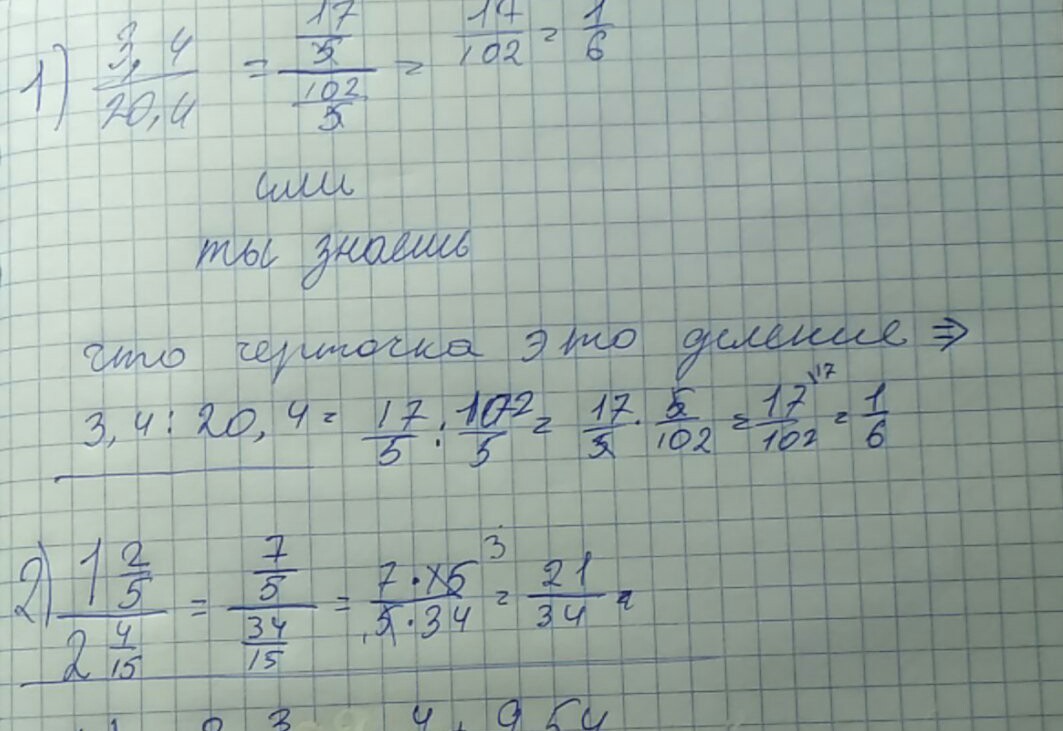 1) 3,4/20,4 = (17/5)/(102/5) = 17/102 = 1/6
или
ты знаешь
что черточка это деление ⇒
3,4 : 20,4 = 17/5 : 102/5 = 17/5 · 5/102 = 17/102 \17 = 1/6
2) 1 2/5 / 2 4/15 = (7/5)/(34/15) = 7·15 3/5·34 = 21/34 =